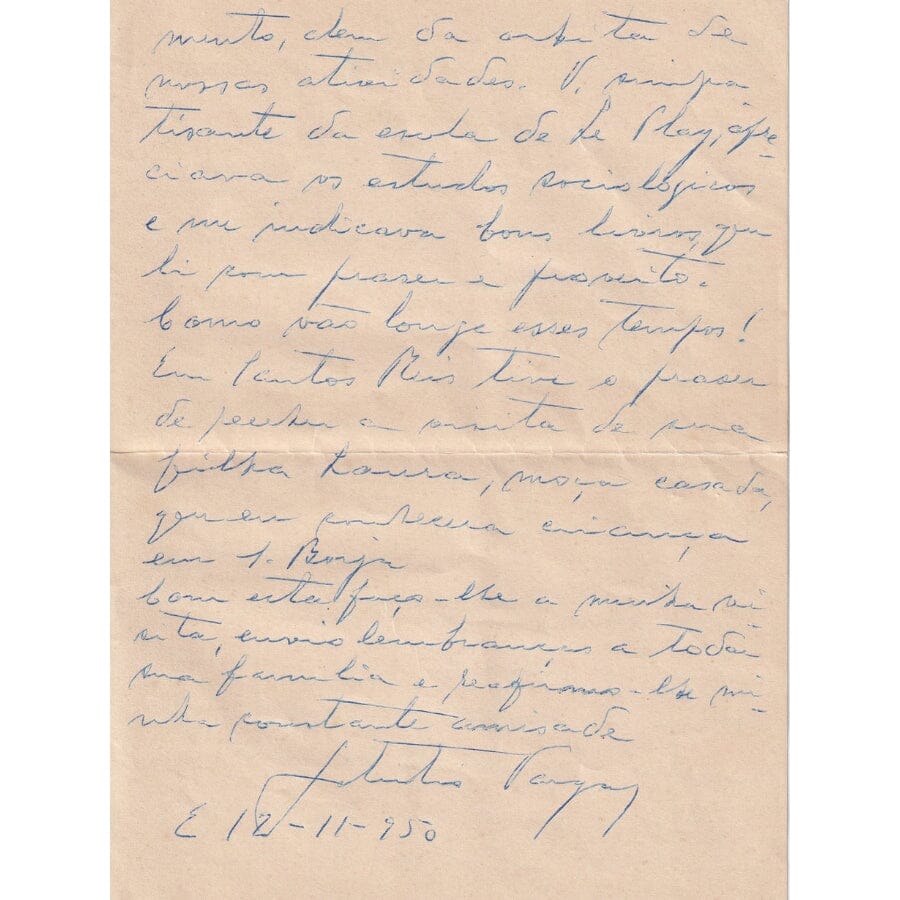 mento, alem da orbita de
nossas atividades. V. simpa
tisante da escola de Le Play, apre-
ciava os estudos sociologicos
e me indicava bons livros, que
li com praser e proveito.
Como vão longe esses tempos!
Em Santos Reis tive o praser
de receber a visita de sua
filha Laura, moça casada,
que eu conhecera criança
em S. Borja
Com esta faço-lhe a minha vi-
sita, envio lembranças a toda
sua familia e reafirmo-lhe mi-
nha constante amisade
Getulio Vargas
E 12-11-950